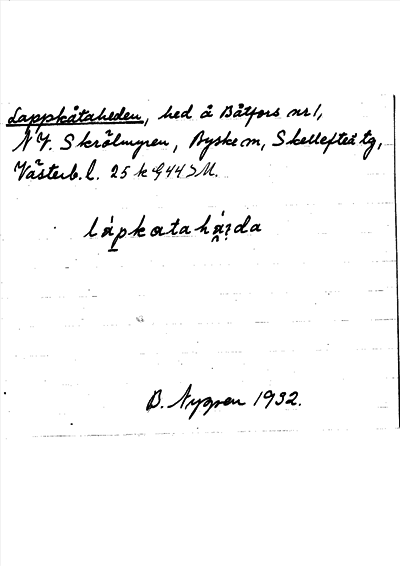 Lappkåtaheden, hed å Båtfors nr 1,
NV. Skrålmyren, Byske sn, Skellefteå tg,
Västerb. l. 25 k G44 SM.
lápkatahá̭i̭da
B. Nygren 1932.